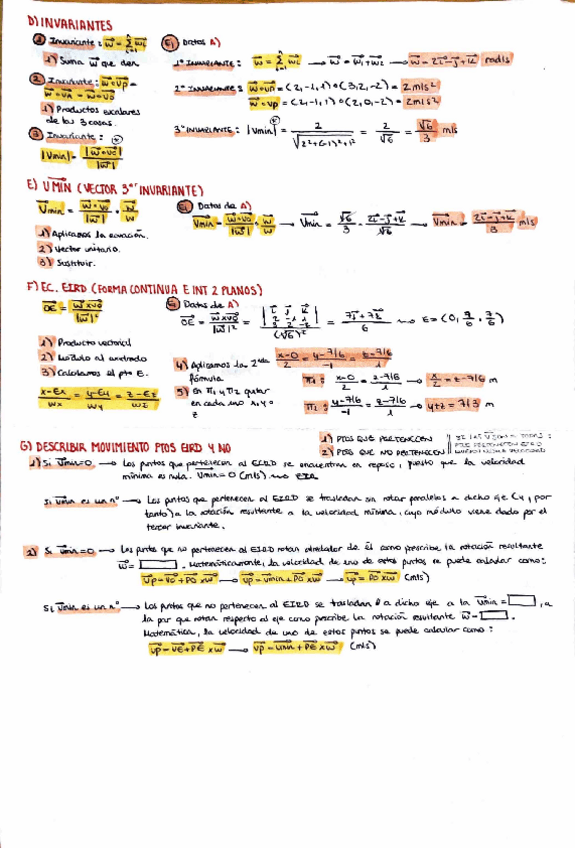 D) INVARIANTES
1 Invariante: w = Σ wi
1) Suma w que den
Ej Datos A)
1º INVARIANTE: w = Σ wi → w = w1 + w2 → w = 2i - j + k rad/s
2 Invariante: w·vp =
w·va = w·vo
1) Productos escalares
de las 3 cosas.
2º INVARIANTE: w·vo = (2,-1,1)·(3,2,-2) = 2 m/s²
w·vp = (2,-1,1)·(2,0,-2) = 2 m/s²
3 Invariante:
|Vmin| = |w·vo| / |w|
3º INVARIANTE: |Vmin| = 2 / √(2²+(-1)²+1²) = 2/√6 = √6/3 m/s
E) VMIN (VECTOR 3er INVARIANTE)
Vmin = w·vo/|w| · w/|w|
1) Aplicamos la ecuación.
2) Vector unitario.
3) Sustituir.
Ej Datos de A)
Vmin = w·vo/|w| · w/|w| → Vmin = √6/3 · 2i-j+k/√6 → Vmin = 2i-j+k/3 m/s
F) EC. EIRD (FORMA CONTINUA E INT 2 PLANOS)
OE = w×vo/|w|²
1) Producto vectorial
2) Módulo al cuadrado
3) Calculamos el pto E.
x-Ex/wx = y-Ey/wy = z-Ez/wz
Ej Datos de A)
OE = w×vo/|w|² = |i j k; 2 -1 1; 3 2 -2|/(√6)² = 7j+7k/6 → E = (0, 7/6, 7/6)
4) Aplicamos la 2nda
fórmula
x-0/2 = y-7/6/-1 = z-7/6/1
5) En π1 y π2 quitar
en cada uno x, y o
z
π1: x-0/2 = z-7/6/1 → x/2 = z-7/6 m
π2: y-7/6/-1 = z-7/6/1 → y+z = 7/3 m
G) DESCRIBIR MOVIMIENTO PTOS EIRD Y NO
1) PTOS QUE PERTENECEN
2) PTOS QUE NO PERTENECEN
1) Si Vmin=0 → Los puntos que pertenecen al EIRD se encuentran en reposo, puesto que la velocidad
mínima es nula. Vmin = 0 (m/s) → EIR
Si Vmin es un nº → Los puntos que pertenecen al EIRD se trasladan sin rotar paralelos a dicho eje (y, por
tanto) a la rotación resultante a la velocidad mínima, cuyo módulo viene dado por el
tercer invariante.
2) Si Vmin=0 → Los puntos que no pertenecen al EIRD rotan alrededor de él como prescribe la rotación resultante
w = . Matemáticamente, la velocidad de uno de estos puntos se puede calcular como:
Vp = Vo + PO×w → Vp = Vmin + PO×w → Vp = PO×w (m/s)
Si Vmin es un nº → Los puntos que no pertenecen al EIRD se trasladan a dicho eje a la Vmin = , a
la par que rotan respecto al eje como prescribe la rotación resultante w = .
Matemática, la velocidad de uno de estos puntos se puede calcular como:
Vp = VE + PE×w → Vp = Vmin + PE×w (m/s)